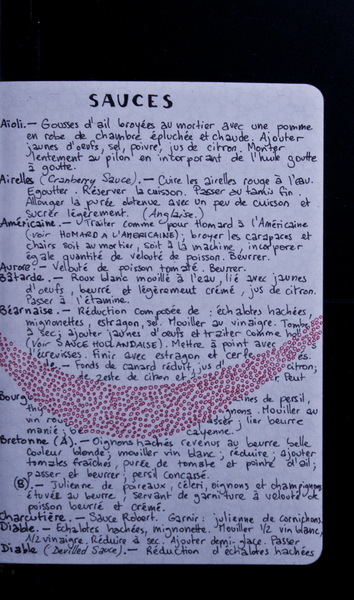 SAUCES
Aïoli.— Gousses d'ail broyées au mortier avec une pomme
en robe de chambre épluchée et chaude. Ajouter
jaunes d'oeufs, sel, poivre, jus de citron. Monter
lentement au pilon en incorporant de l'huile goutte
à goutte.
Airelles (Cranberry Sauce).— Cuire les airelles rouge à l'eau.
Egoutter. Réserver la cuisson. Passer au tamis fin.
Allonger la purée obtenue avec un peu de cuisson et
sucrer légèrement. (Anglaise.)
Américaine.— Traiter comme pour homard à l'Américaine
(voir HOMARD A L'AMERICAINE); broyer les carapaces et
chairs soit au mortier, soit à la machine, incorporer
égale quantité de velouté de poisson. Beurrer.
Aurore.— Velouté de poisson tomaté. Beurrer.
Bâtarde.— Roux blanc mouillé à l'eau, lié avec jaunes
d'oeufs, beurré et légèrement crémé, jus de citron.
Passer à l'étamine.
Béarnaise.— Réduction composée de: échalotes hachées,
mignonettes, estragon, sel. Mouiller au vinaigre. Tomber
à sec; ajouter jaunes d'oeufs et traiter comme holl
(voir SAUCE HOLLANDAISE). Mettre à point avec
d'écrevisses. Finir avec estragon et cerfe es.
de.— Fonds de canard réduit, jus d' citron;
de zeste de citron et Peut
Bourg ines de persil,
thy gnons. Mouiller au
vin rou passer; lier beurre
manié; be cayenne.
Bretonne (A).— Oignons hachés revenus au beurre belle
couleur blonde; mouiller vin blanc; réduire; ajouter
tomates fraîches, purée de tomate et pointe d'ail;
passer et beurrer; persil concassé.
(B).— Julienne de poireaux, céleri, oignons et champignons
étuvée au beurre; servant de garniture à velouté de
poisson beurré et crémé.
Charcutière.— Sauce Robert. Garnir: julienne de cornichons.
Diable.— Echalotes hachées, mignonette. Mouiller 1/2 vin blanc,
1/2 vinaigre. Réduire à sec. Ajouter demi-glace. Passer
Diable (Devilled Sauce).— Réduction d'échalotes hachées